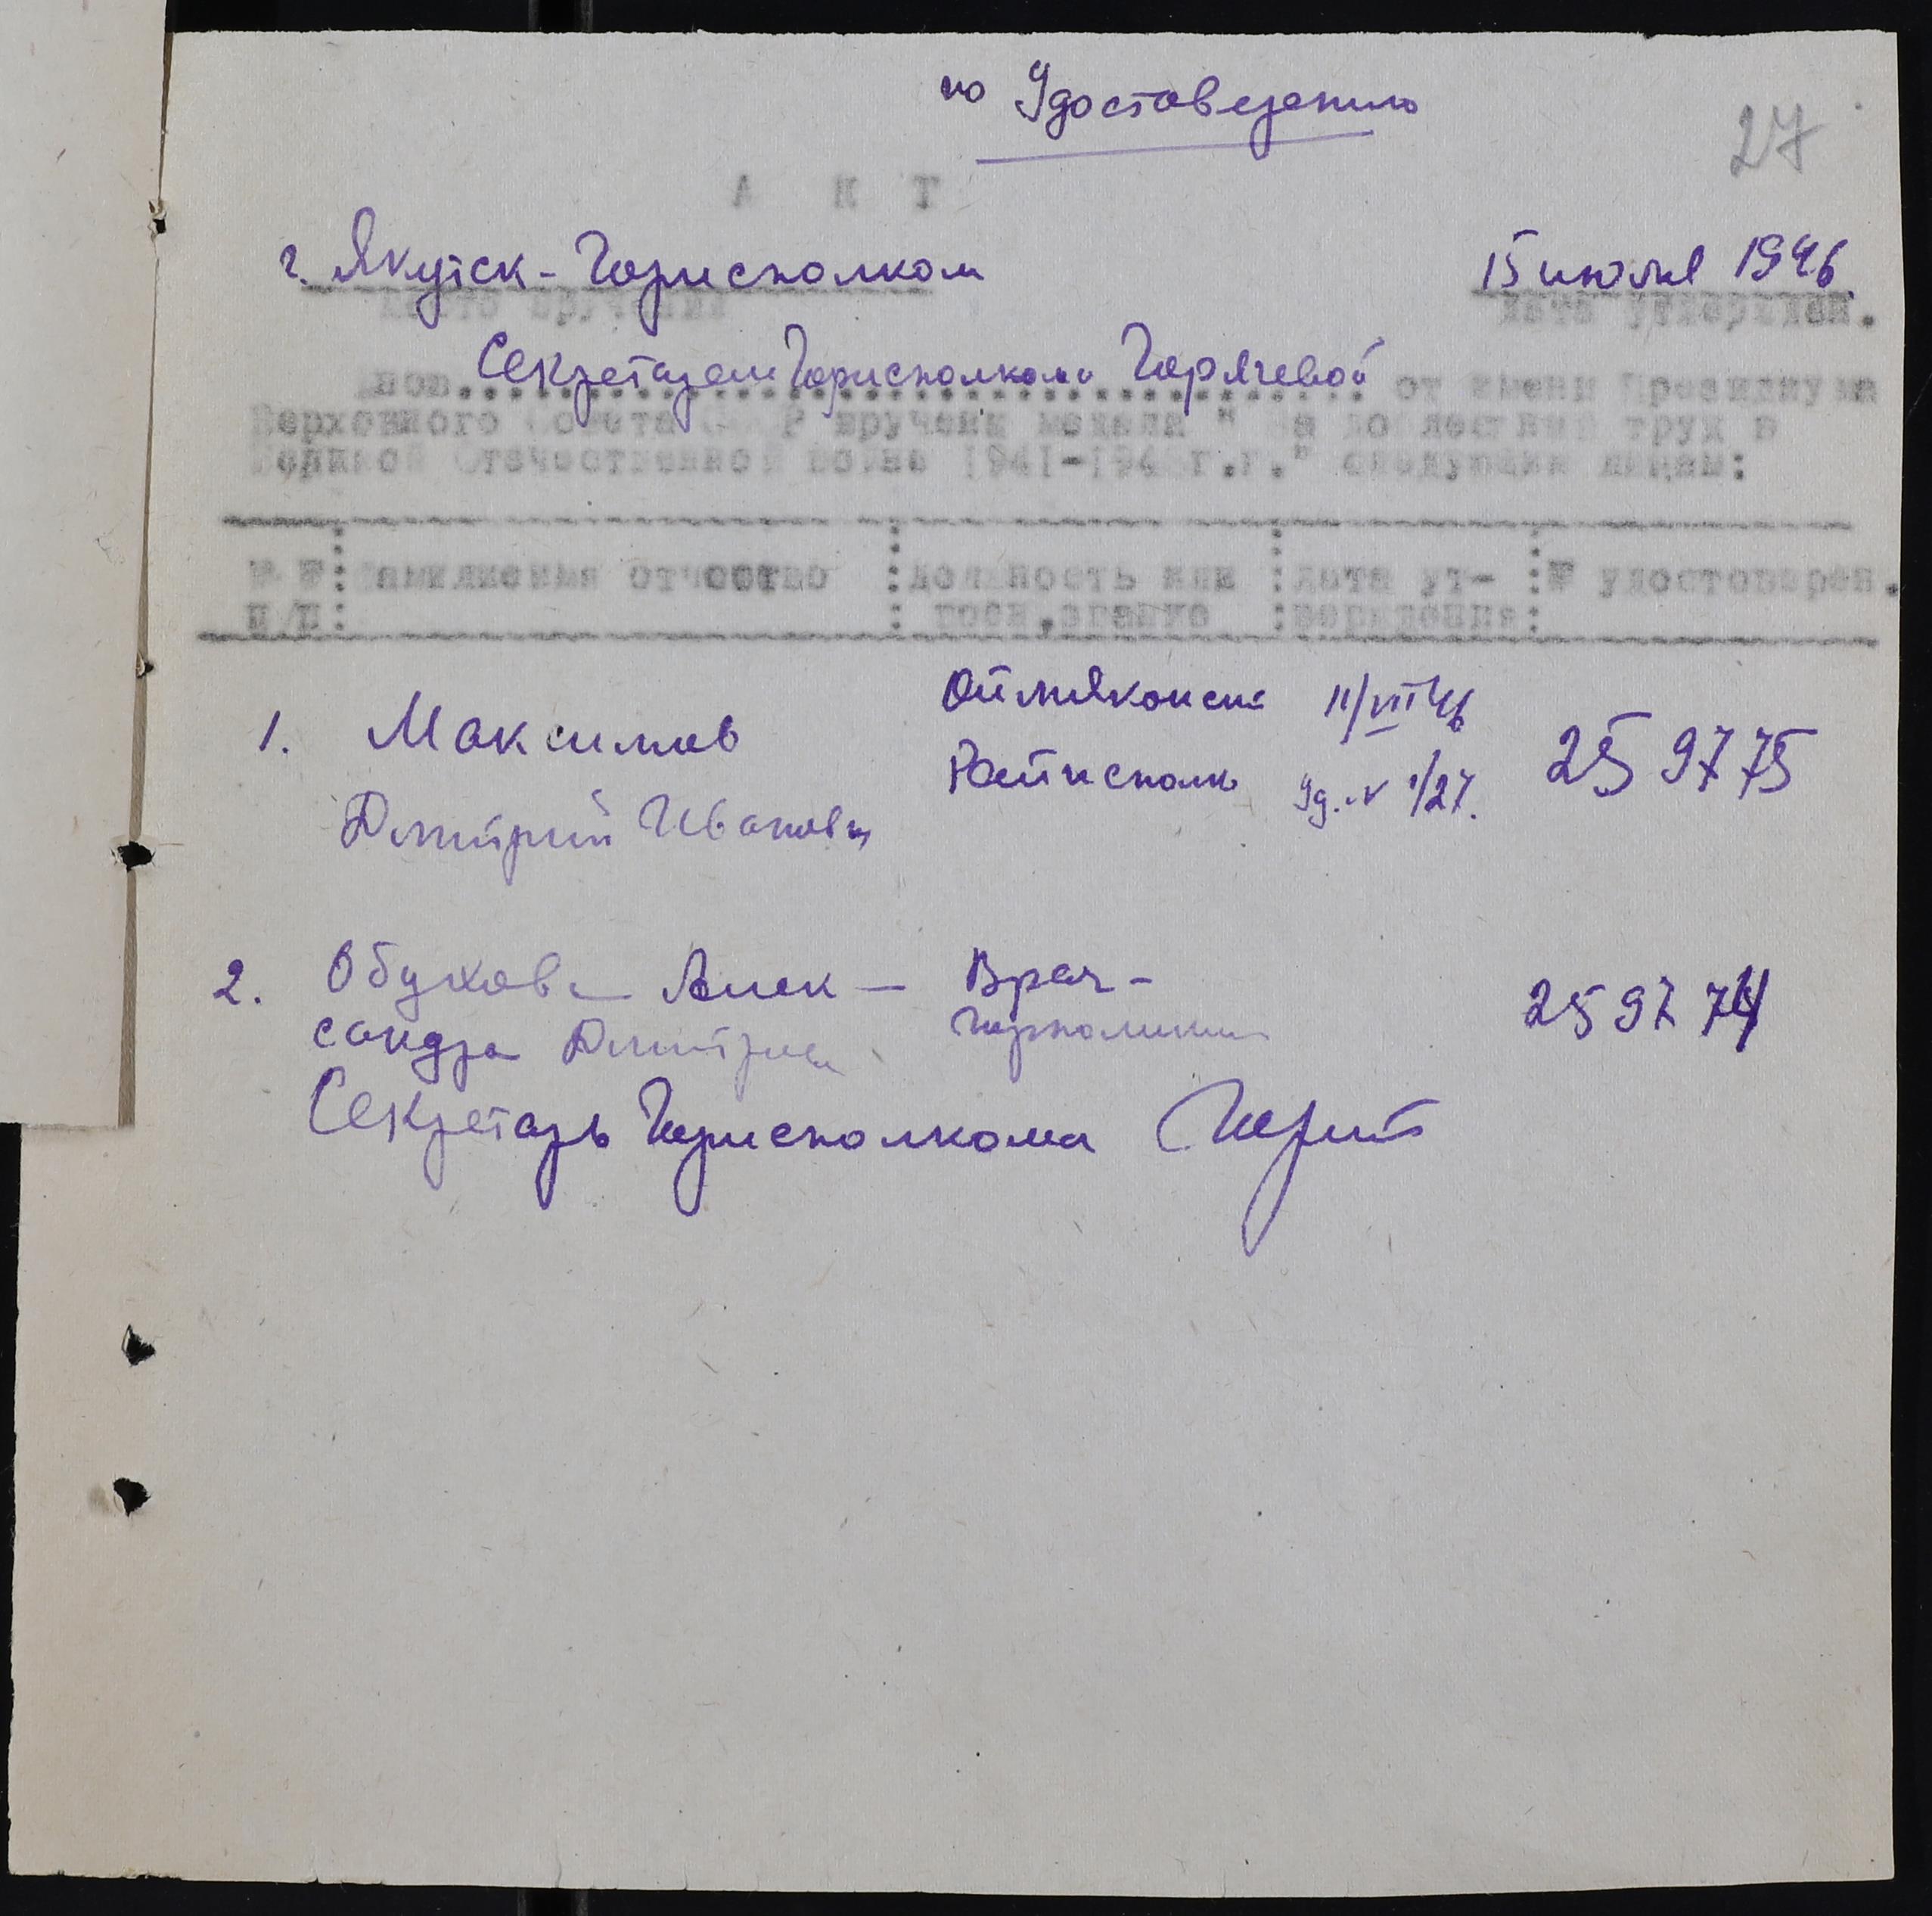 по Удостоверению
27
А К Т
г. Якутск - Горисполком
15 июля 1946
место вручения
дата утвержден.
Секретарем Горисполкома Горячевой
мною........................................ от имени Президиума
Верховного Совета СССР вручены медали "За доблестный труд в
Великой Отечественной войне 1941-1945г.г." следующим лицам:
№ №: фамилия имя отчество :должность или :дата ут- :№ удостоверен.
п/п: : госн.звание :верждения:
1. Максимов Оймяконск 11/VII 46 259775
Дмитрий Иванович Райисполк Уд. № 1/27.
2. Обухова Алек- Врач- 259774
сандра Дмитриев
Секретарь Горисполкома